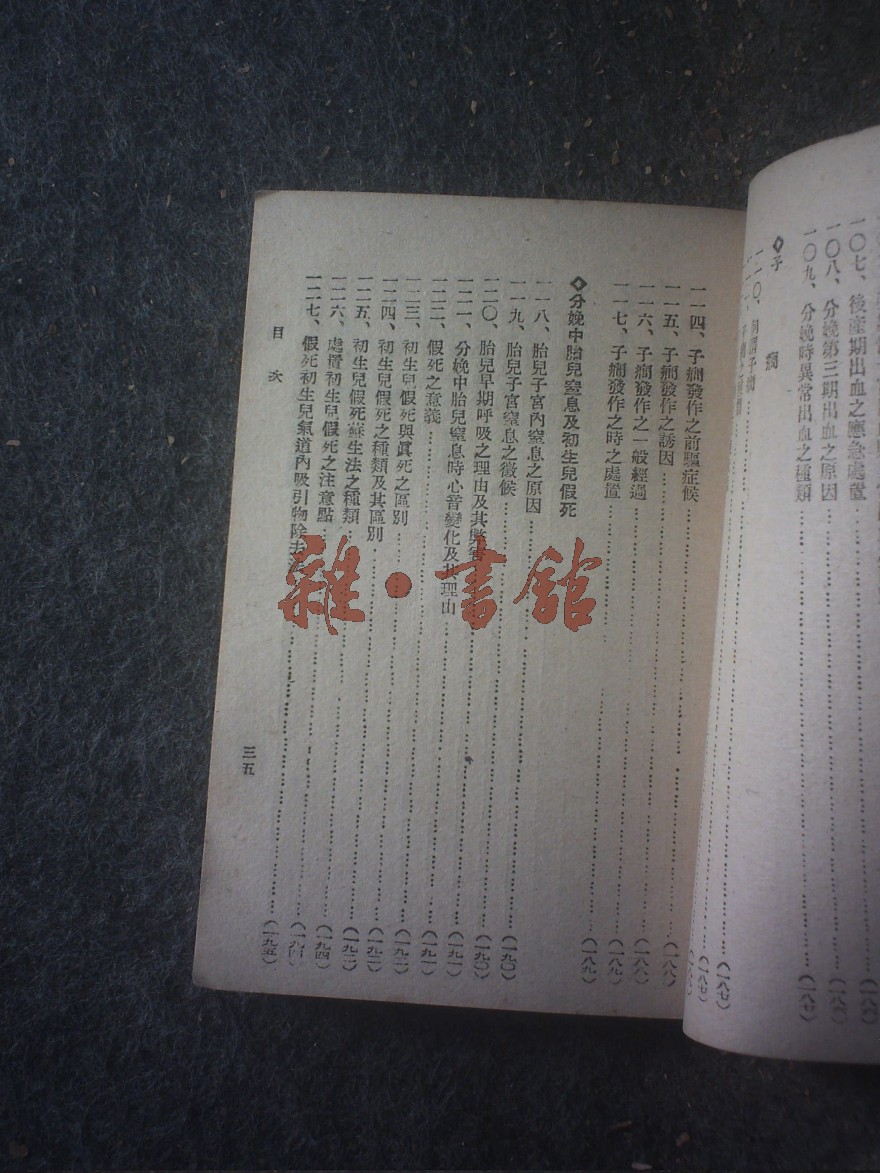 一〇七、後產期出血之應急處置
一〇八、分娩第三期出血之原因……(一八六)
一〇九、分娩時異常出血之種類……(一八七)
◇子癇
一一〇、何謂子癇……(一八七)
一一四、子癇發作之前驅症候……(一八八)
一一五、子癇發作之誘因……(一八八)
一一六、子癇發作之一般經過……(一八九)
一一七、子癇發作之時之處置……(一八九)
◇分娩中胎兒窒息及初生兒假死
一一八、胎兒子宮內窒息之原因……(一九〇)
一一九、胎兒子宮窒息之徵候……(一九〇)
一二〇、胎兒早期呼吸之理由及其弊害……(一九一)
一二一、分娩中胎兒窒息時心音變化及其理由……(一九一)
一二二、假死之意義……(一九二)
一二三、初生兒假死與眞死之區別……(一九二)
一二四、初生兒假死之種類及其區別……(一九二)
一二五、初生兒假死蘇生法之種類……(一九四)
一二六、處置初生兒假死之注意點……(一九四)
一二七、假死初生兒氣道內吸引物除去法……(一九五)
目次
三五
雜·書館